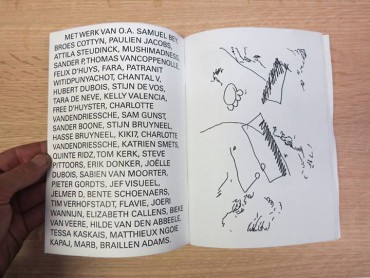 MET WERK VAN O.A. SAMUEL BEY,
BROES COTTYN, PAULIEN JACOBS,
ATTILA STEUDINCK, MUSHIMADNESS,
SANDER P, THOMAS VANCOPPENOLLE,
FELIX D'HUYS, FARA, PATRANIT
WITIDPUNYACHOT, CHANTAL V,
HUBERT DUBOIS, STIJN DE VOS,
TARA DE NEVE, KELLY VALENCIA,
FREE D'HUYSTER, CHARLOTTE
VANDENDRIESSCHE, SAM GUNST,
SANDER BOONE, STIJN BRUYNEEL,
HASSE BRUYNEEL, KIKI7, CHARLOTTE
VANDENDRIESSCHE, KATRIEN SMETS,
QUINTE RIDZ, TOM KERK, STEVE
PITTOORS, ERIK DONKER, JOËLLE
DUBOIS, SABIEN VAN MOORTER,
PIETER GORDTS, JEF VISUEEL,
JELMER D, BENTE SCHOENAERS,
TIM VERHOFSTADT, FLAVIE, JOERI
WANNIJN, ELIZABETH CALLENS, BIEKE
VAN VEERE, HILDE VAN DEN ABBEELE,
TESSA KASKAIS, MATTHIEUX NGOIE
KAPAJ, MARB, BRAILLEN ADAMS.